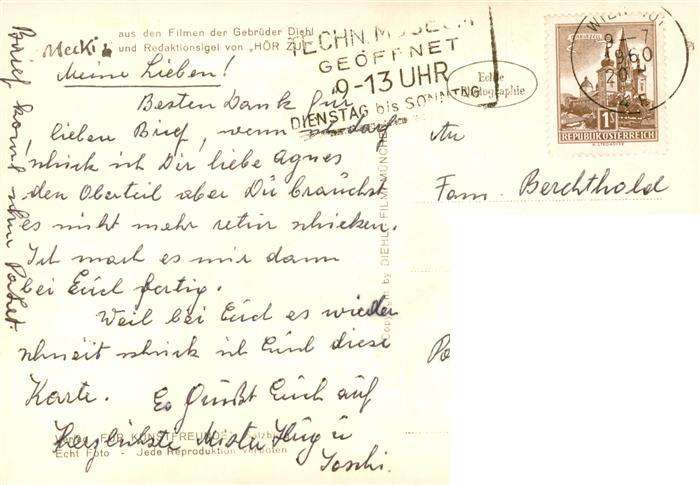 aus den Filmen der Gebrüder Diehl
Mecki und Redaktionsigel von „HÖR ZU"
Meine Lieben!
Besten Dank für
lieben Brief, wenn
schick ich Dir liebe Agnes
den Oberteil aber Du brauchst
es nicht mehr retur schicken.
Ich mach es mir dann
bei Euch fertig.
Weil bei Euch es wieder
schneit schick ich Euch diese
Karte. Es grüßt Euch auf
herzlichste
Joschi.
FÜR KUNSTFREUNDE
Echt Foto - Jede Reproduktion verboten
Brief komt ohne Paket.
Copyright by DIEHL-FILM MÜNCHEN
TECHN. MUSEUM
GEÖFFNET
9-13 UHR
DIENSTAG bis SONNTAG
Echte
Photographie
WIEN
1960
1S
REPUBLIK ÖSTERREICH
An
Fam. Berchthold